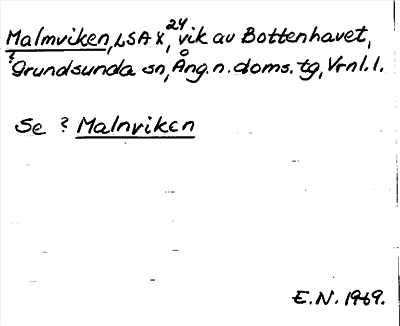 Malmviken, LSA X, 24, vik av Bottenhavet,
? Grundsunda sn, Ång. n. doms. tg, Vrnl. l.
Se ? Malnviken
E.N. 1969.